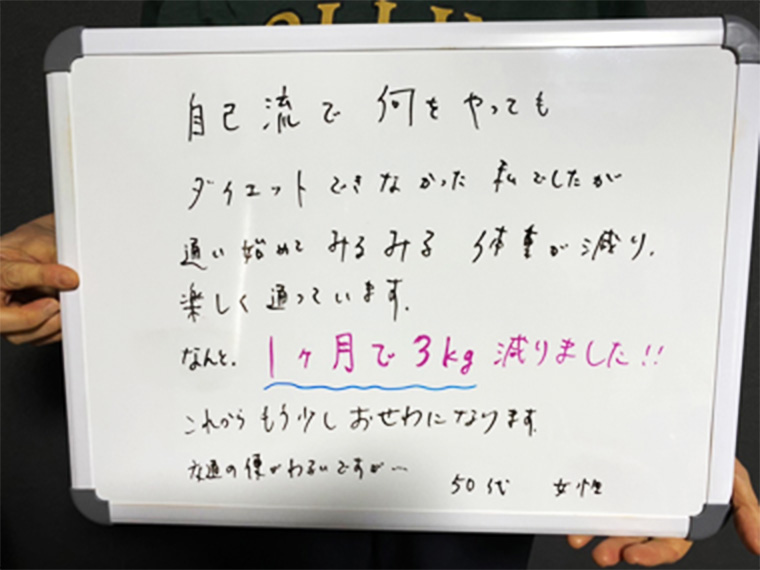 自己流で 何をやっても
ダイエットできなかった 私でしたが
通い始めて みるみる 体重が減り、
楽しく通っています。
なんと、1ヶ月で3kg減りました!!
これから もう少し おせわになります。
交通の便がわるいですが…
50代 女性